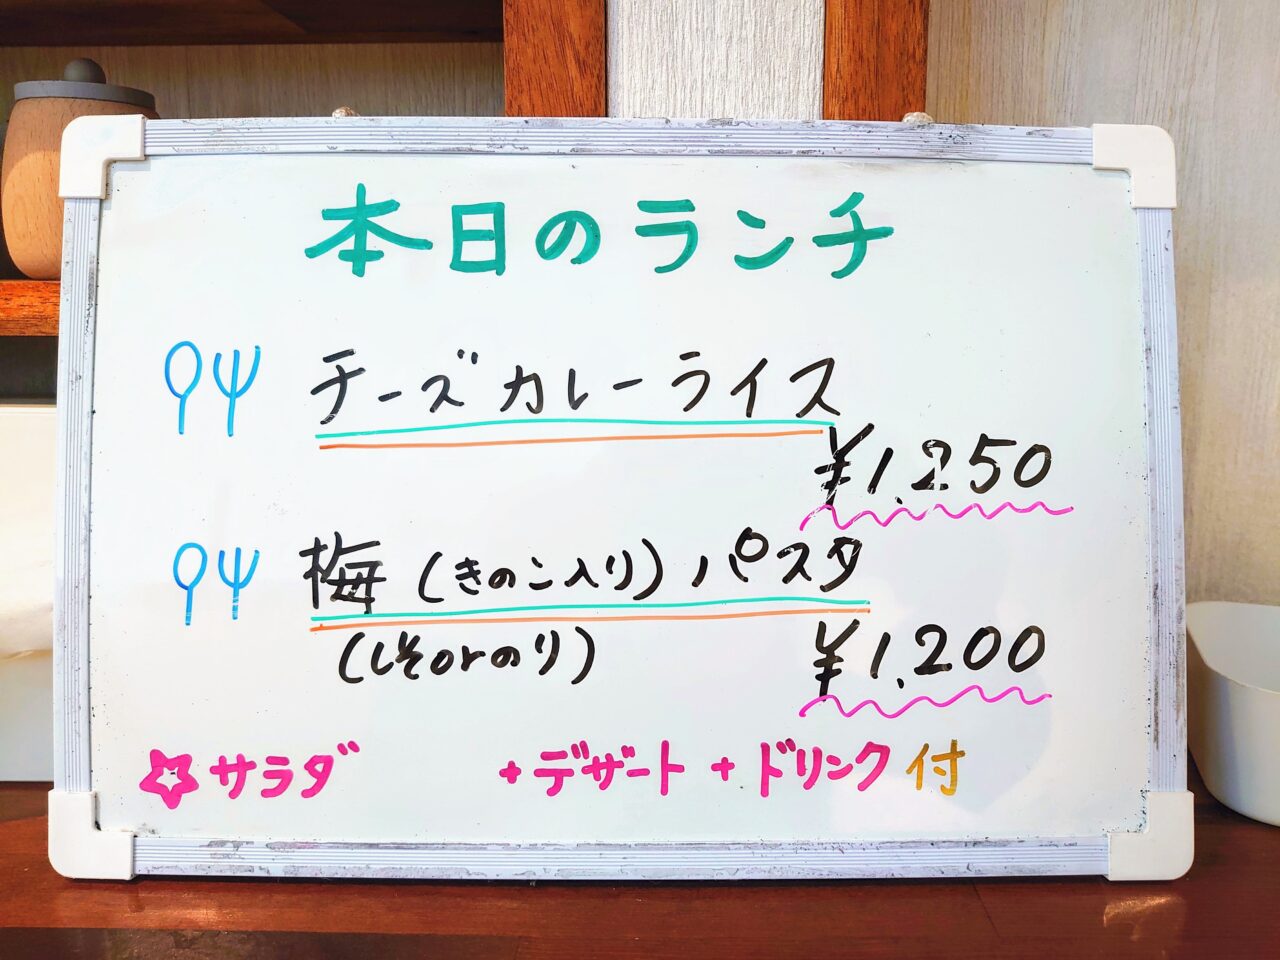 本日のランチ
チーズカレーライス
¥1,250
梅(きのこ入り)パスタ
(しそorのり)
¥1,200
サラダ +デザート+ドリンク付